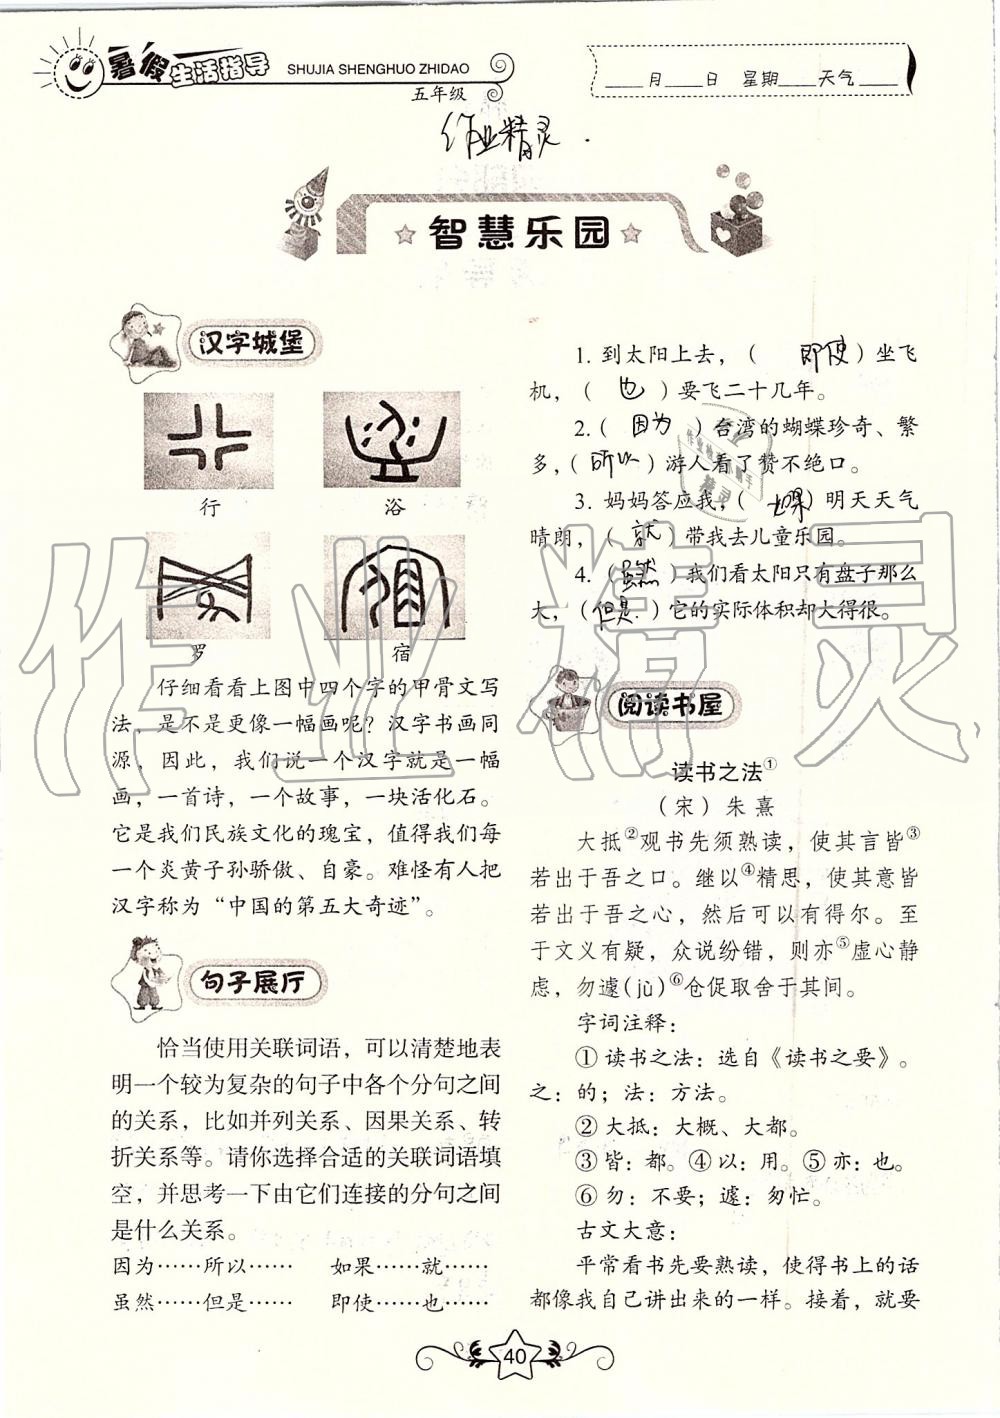 暑假生活指导
SHUJIA SHENGHUO ZHIDAO
五年级
____月____日 星期____天气____
作业精灵
智慧乐园
汉字城堡
行 浴
罗 宿
仔细看看上图中四个字的甲骨文写
法，是不是更像一幅画呢？汉字书画同
源，因此，我们说一个汉字就是一幅
画，一首诗，一个故事，一块活化石。
它是我们民族文化的瑰宝，值得我们每
一个炎黄子孙骄傲、自豪。难怪有人把
汉字称为“中国的第五大奇迹”。
句子展厅
恰当使用关联词语，可以清楚地表
明一个较为复杂的句子中各个分句之间
的关系，比如并列关系、因果关系、转
折关系等。请你选择合适的关联词语填
空，并思考一下由它们连接的分句之间
是什么关系。
因为……所以…… 如果……就……
虽然……但是…… 即使……也……
1. 到太阳上去，（即使）坐飞
机，（也）要飞二十几年。
2.（因为）台湾的蝴蝶珍奇、繁
多，（所以）游人看了赞不绝口。
3. 妈妈答应我，（如果）明天天气
晴朗，（就）带我去儿童乐园。
4.（虽然）我们看太阳只有盘子那么
大，（但是）它的实际体积却大得很。
阅读书屋
读书之法①
（宋）朱熹
大抵②观书先须熟读，使其言皆③
若出于吾之口。继以④精思，使其意皆
若出于吾之心，然后可以有得尔。至
于文义有疑，众说纷错，则亦⑤虚心静
虑，勿遽(jù)⑥仓促取舍于其间。
字词注释：
①读书之法：选自《读书之要》。
之：的；法：方法。
②大抵：大概、大都。
③皆：都。④以：用。⑤亦：也。
⑥勿：不要；遽：匆忙。
古文大意：
平常看书先要熟读，使得书上的话
都像我自己讲出来的一样。接着，就要
40
作业精灵